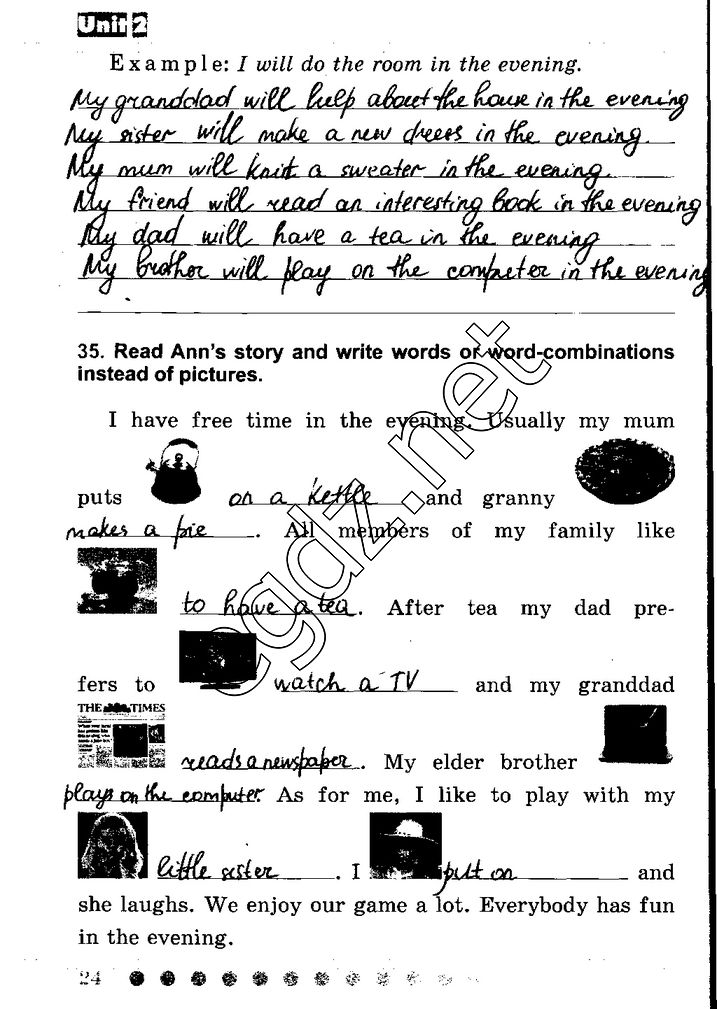 Unit 2
Example: I will do the room in the evening.
My granddad will help about the house in the evening
My sister will make a new dress in the evening.
My mum will knit a sweater in the evening.
My friend will read an interesting book in the evening
My dad will have a tea in the evening
My brother will play on the computer in the evening
35. Read Ann's story and write words or word-combinations
instead of pictures.
I have free time in the evening. Usually my mum
puts on a kettle and granny
makes a pie. All members of my family like
to have a tea. After tea my dad pre-
fers to watch a TV and my granddad
THE TIMES
reads a newspaper. My elder brother
plays on the computer. As for me, I like to play with my
little sister. I put on and
she laughs. We enjoy our game a lot. Everybody has fun
in the evening.
24
egdz.net